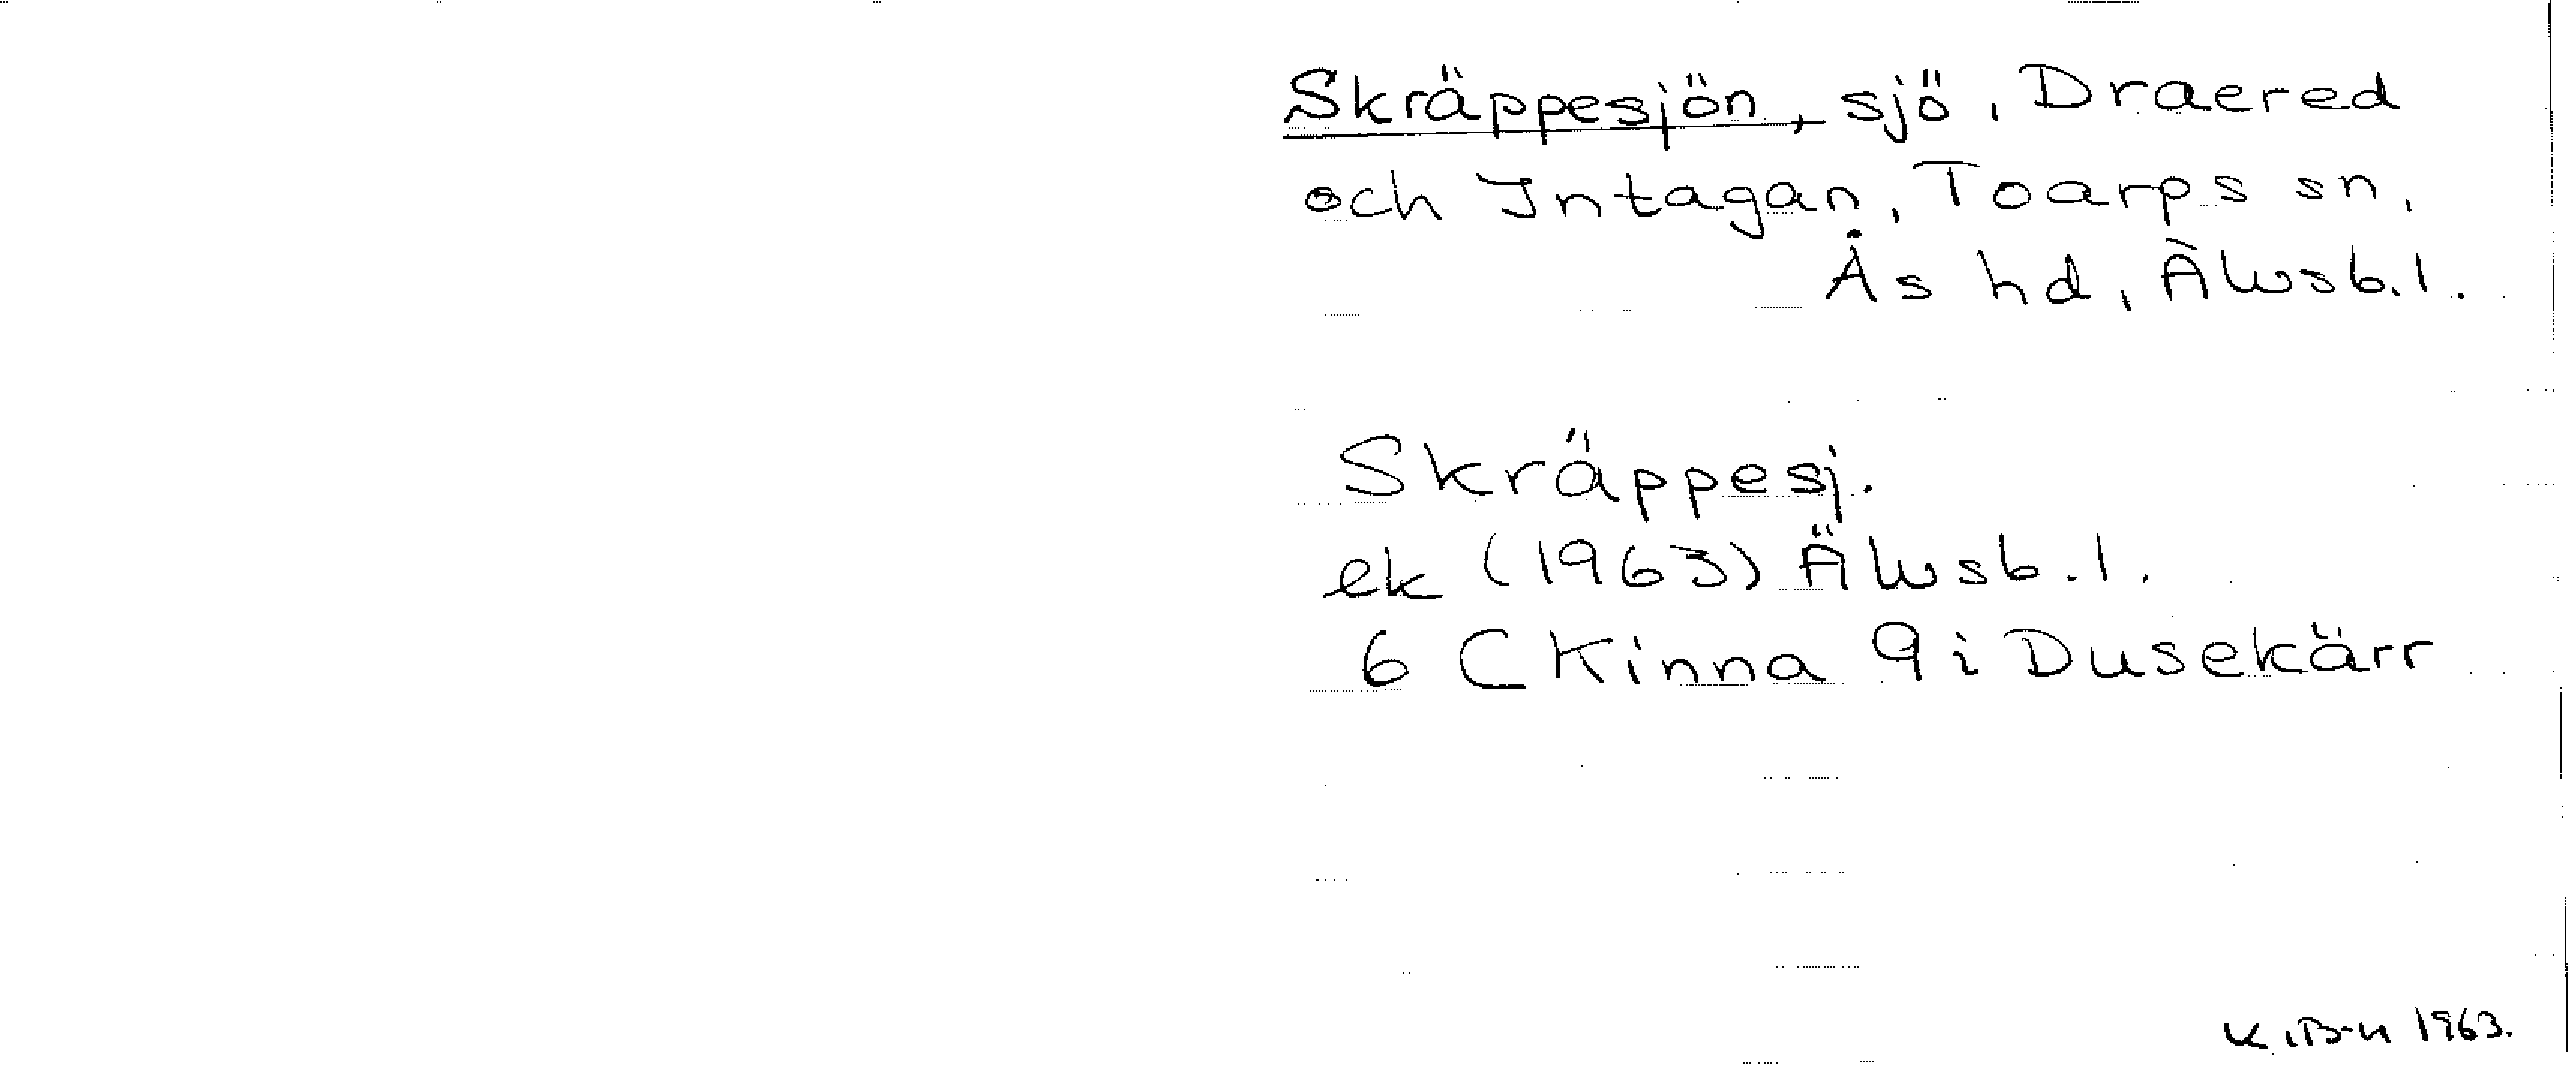 Skräppesjön, sjö, Draered
och Intagan, Toarps sn,
Ås hd, Älvsb.l.
Skräppesj.
ek (1963) Älvsb.l.
6 C Kinna 9 i Dusekärr
1963.